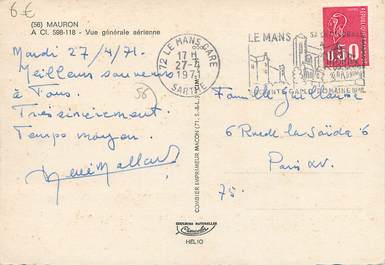 6€
(56) MAURON
A Cl. 598-118 - Vue générale aérienne
Mardi 27/4/71.
Meilleurs souvenirs
à Tous.
Très sincèrement.
Temps moyen.
56
72 LE MANS GARE
27-4
1971
SARTHE
LE MANS
0,50
COMBIER IMPRIMEUR MACON
Famille Guillaume
6 Rue de la Saïda 6
Paris XV.
75.
COULEURS NATURELLES
HÉLIO